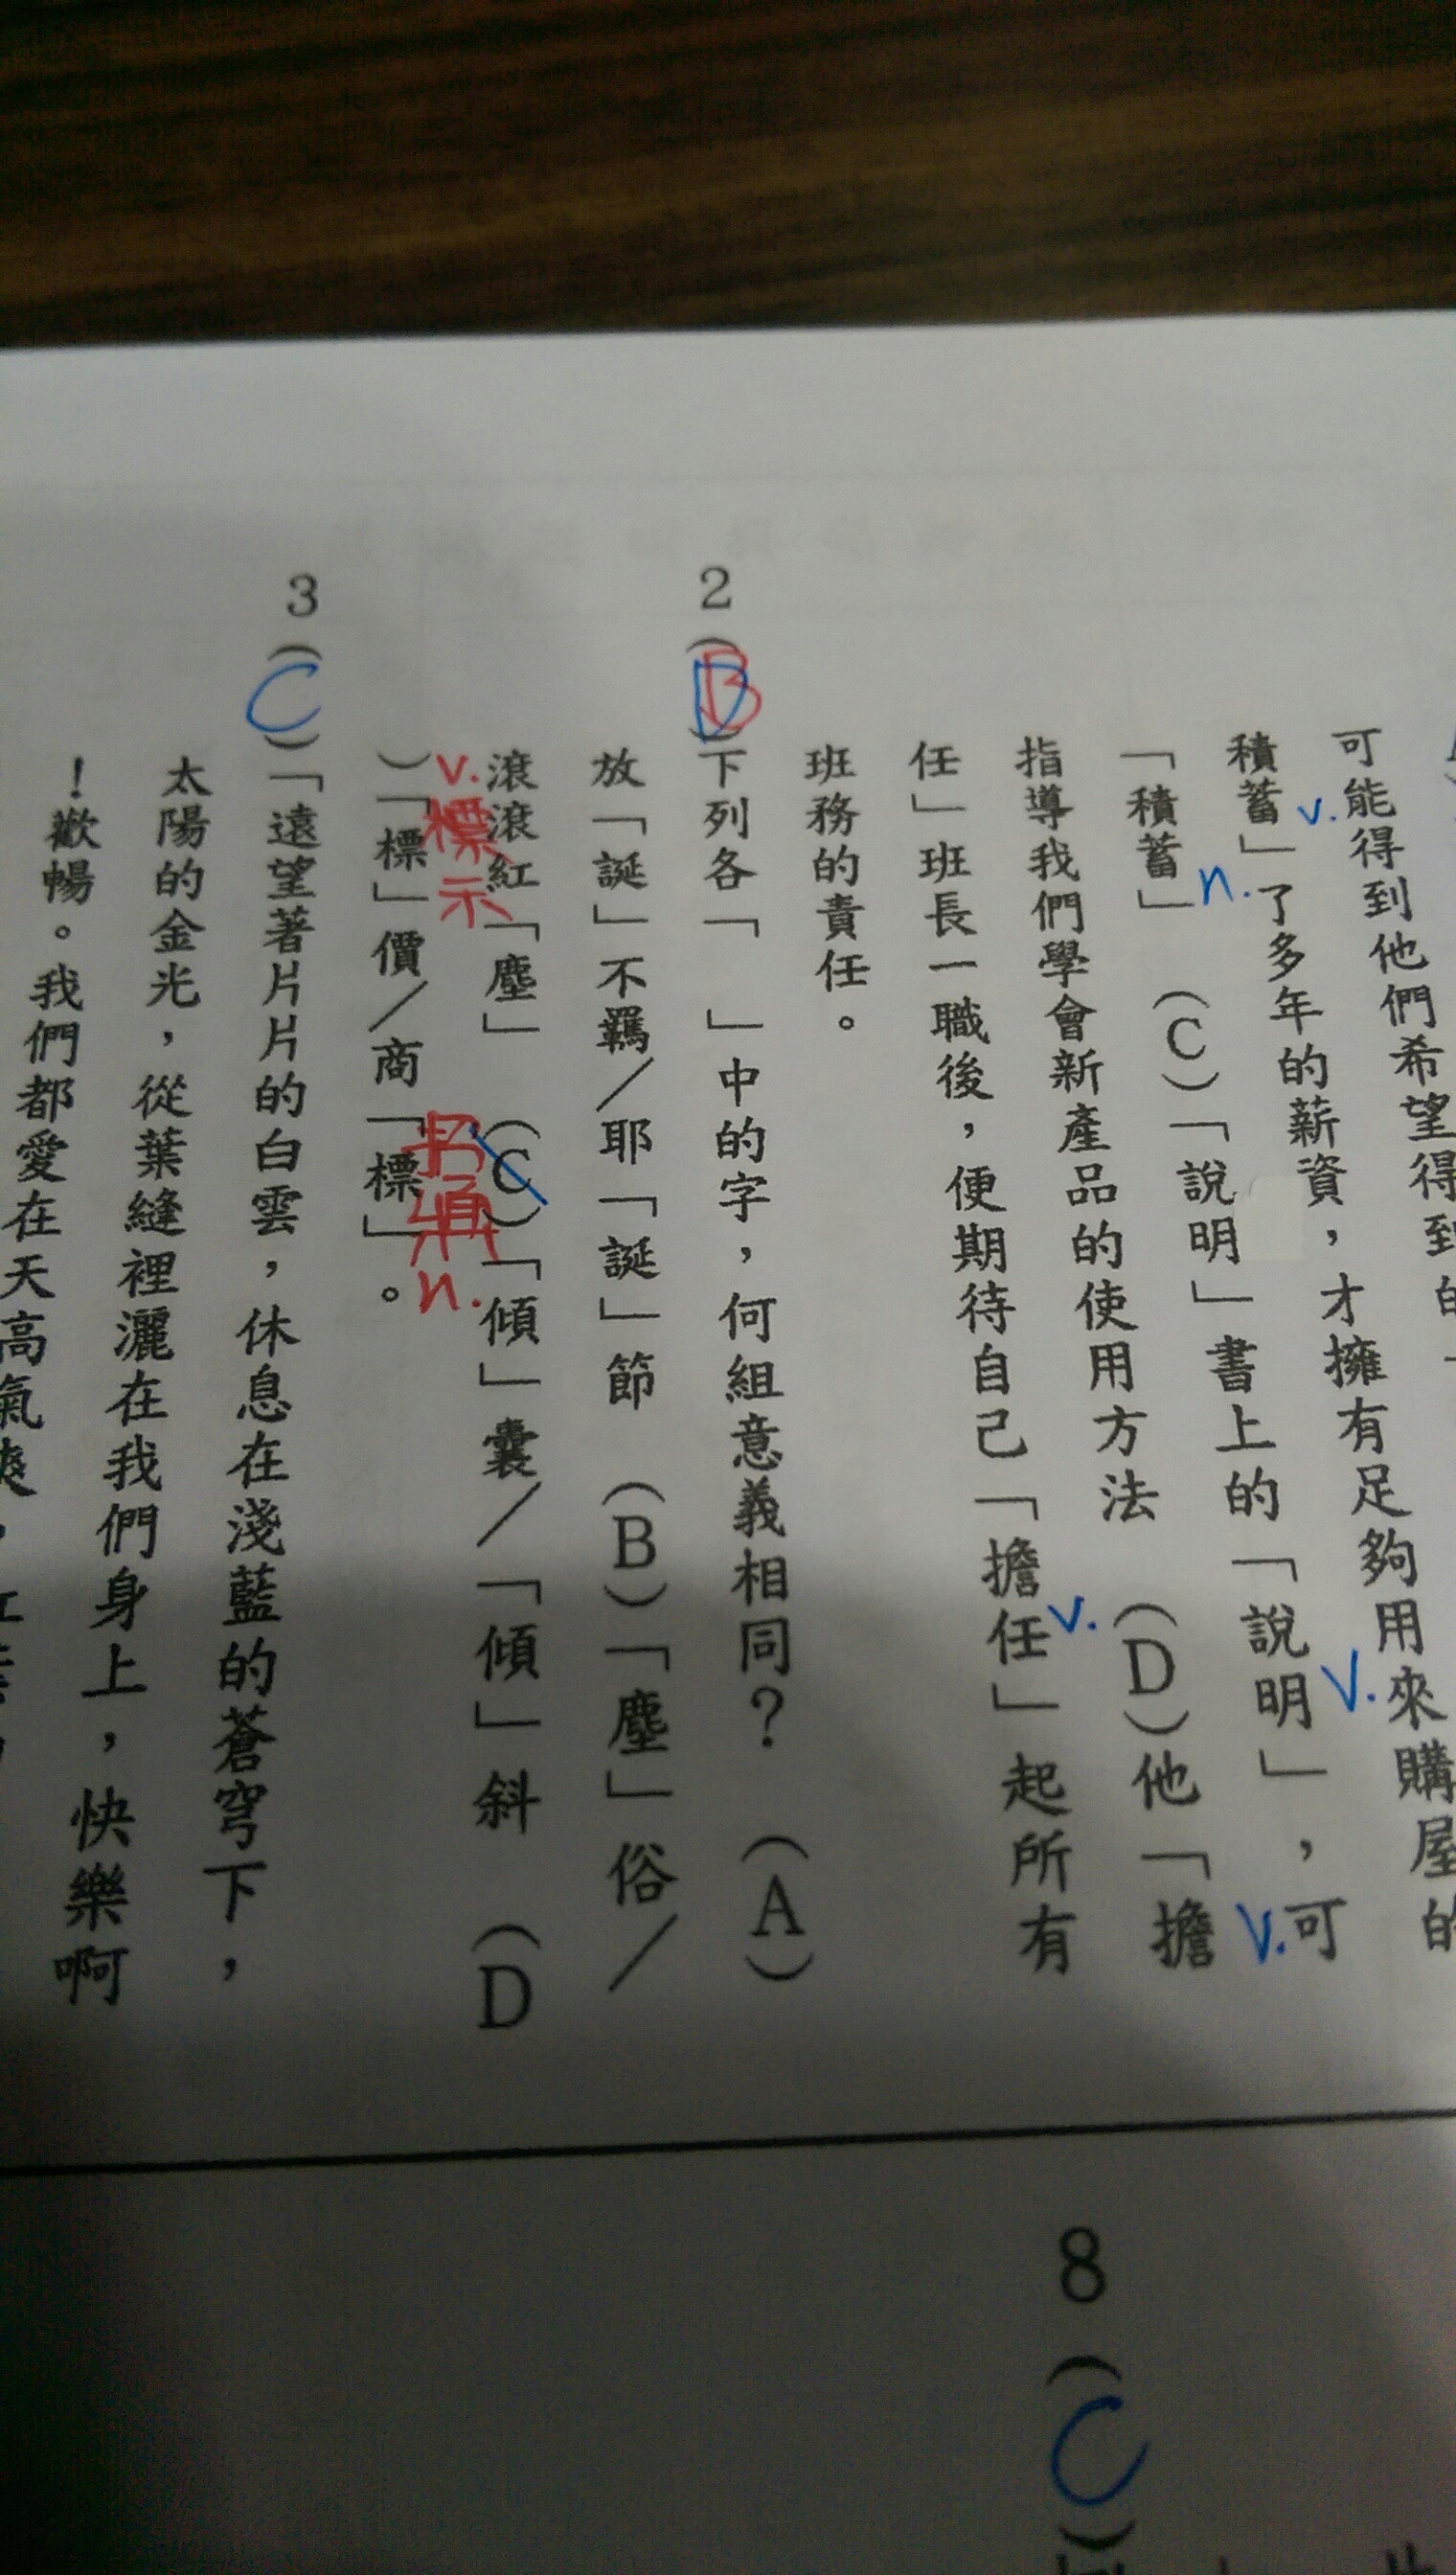 可能得到他們希望得到的
積蓄」了多年的薪資，才擁有足夠用來購屋的
「積蓄」 （C）「說明」書上的「說明」，可
指導我們學會新產品的使用方法 （D）他「擔
任」班長一職後，便期待自己「擔任」起所有
班務的責任。
v.
n.
V.
v.
V.
2（B）下列各「 」中的字，何組意義相同？ （A）
放「誕」不羈／耶「誕」節 （B）「塵」俗／
滾滾紅「塵」 （C）「傾」囊／「傾」斜 （D
）「標」價／商「標」。
v.標示
n.
3（C）「遠望著片片的白雲，休息在淺藍的蒼穹下，
太陽的金光，從葉縫裡灑在我們身上，快樂啊
！歡暢。我們都愛在天高氣爽，
8（C）